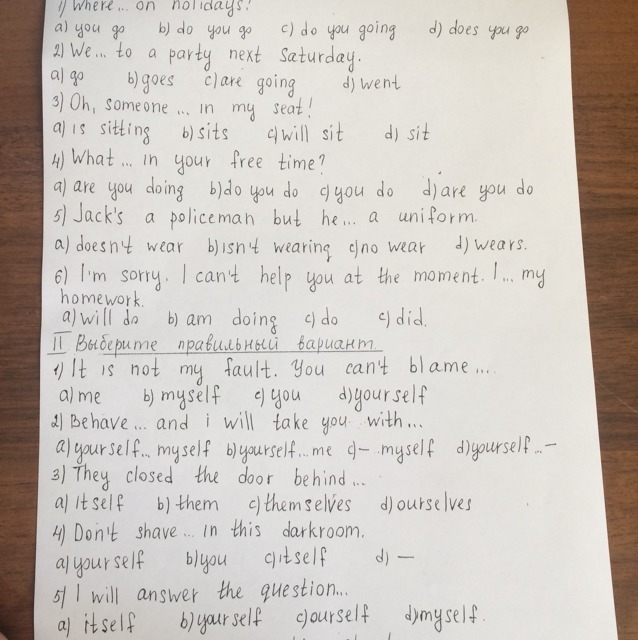 1) Where... on holidays?
a) you go b) do you go c) do you going d) does you go
2) We... to a party next Saturday.
a) go b) goes c) are going d) went
3) Oh, someone ... in my seat!
a) is sitting b) sits c) will sit d) sit
4) What ... in your free time?
a) are you doing b) do you do c) you do d) are you do
5) Jack's a policeman but he... a uniform.
a) doesn't wear b) isn't wearing c) no wear d) wears.
6) I'm sorry. I can't help you at the moment. I... my
homework.
a) will do b) am doing c) do c) did.
II Выберите правильный вариант.
1) It is not my fault. You can't blame...
a) me b) myself c) you d) yourself
2) Behave... and i will take you with...
a) yourself... myself b) yourself... me c) – myself d) yourself... –
3) They closed the door behind...
a) itself b) them c) themselves d) ourselves
4) Don't shave... in this darkroom.
a) yourself b) you c) itself d) —
5) I will answer the question...
a) itself b) yourself c) ourself d) myself.